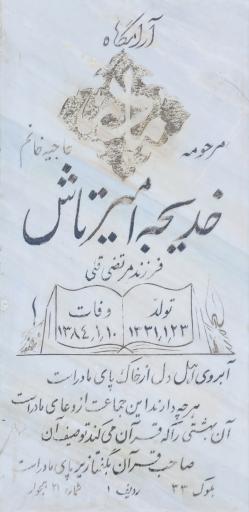 آرامگاه
مرحومه
حاجیه خانم
خدیجه امیرتاش
فرزند مرتضی قلی
تولد
وفات
۱۲۳۱,۱,۲۳
۱۳۸۴,۱,۱۰
آبروی اهل دل از خاک پای مادر است
هر چه دارند این جماعت از دعای مادر است
آن بهشتی را که قرآن می کند توصیف آن
صاحب قرآن بگفتا زیر پای مادر است
بلوک ۳۳ ردیف ۱ شماره ۲۱